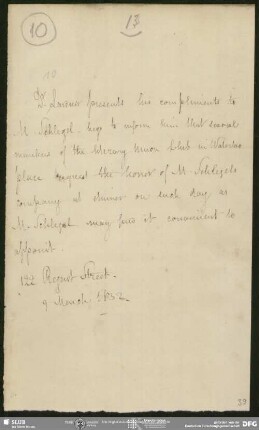 10
13
10
Dr Lorimer presents his compliments to
M. Schlegel. begs to inform him that several
members of the Literary Union Club in Waterloo
place request the honor of M. Schlegel's
company at dinner on such day, as
M. Schlegel may find it convenient to
appoint.
122 Regent Street.
9 March, 1832
SLUB
DFG